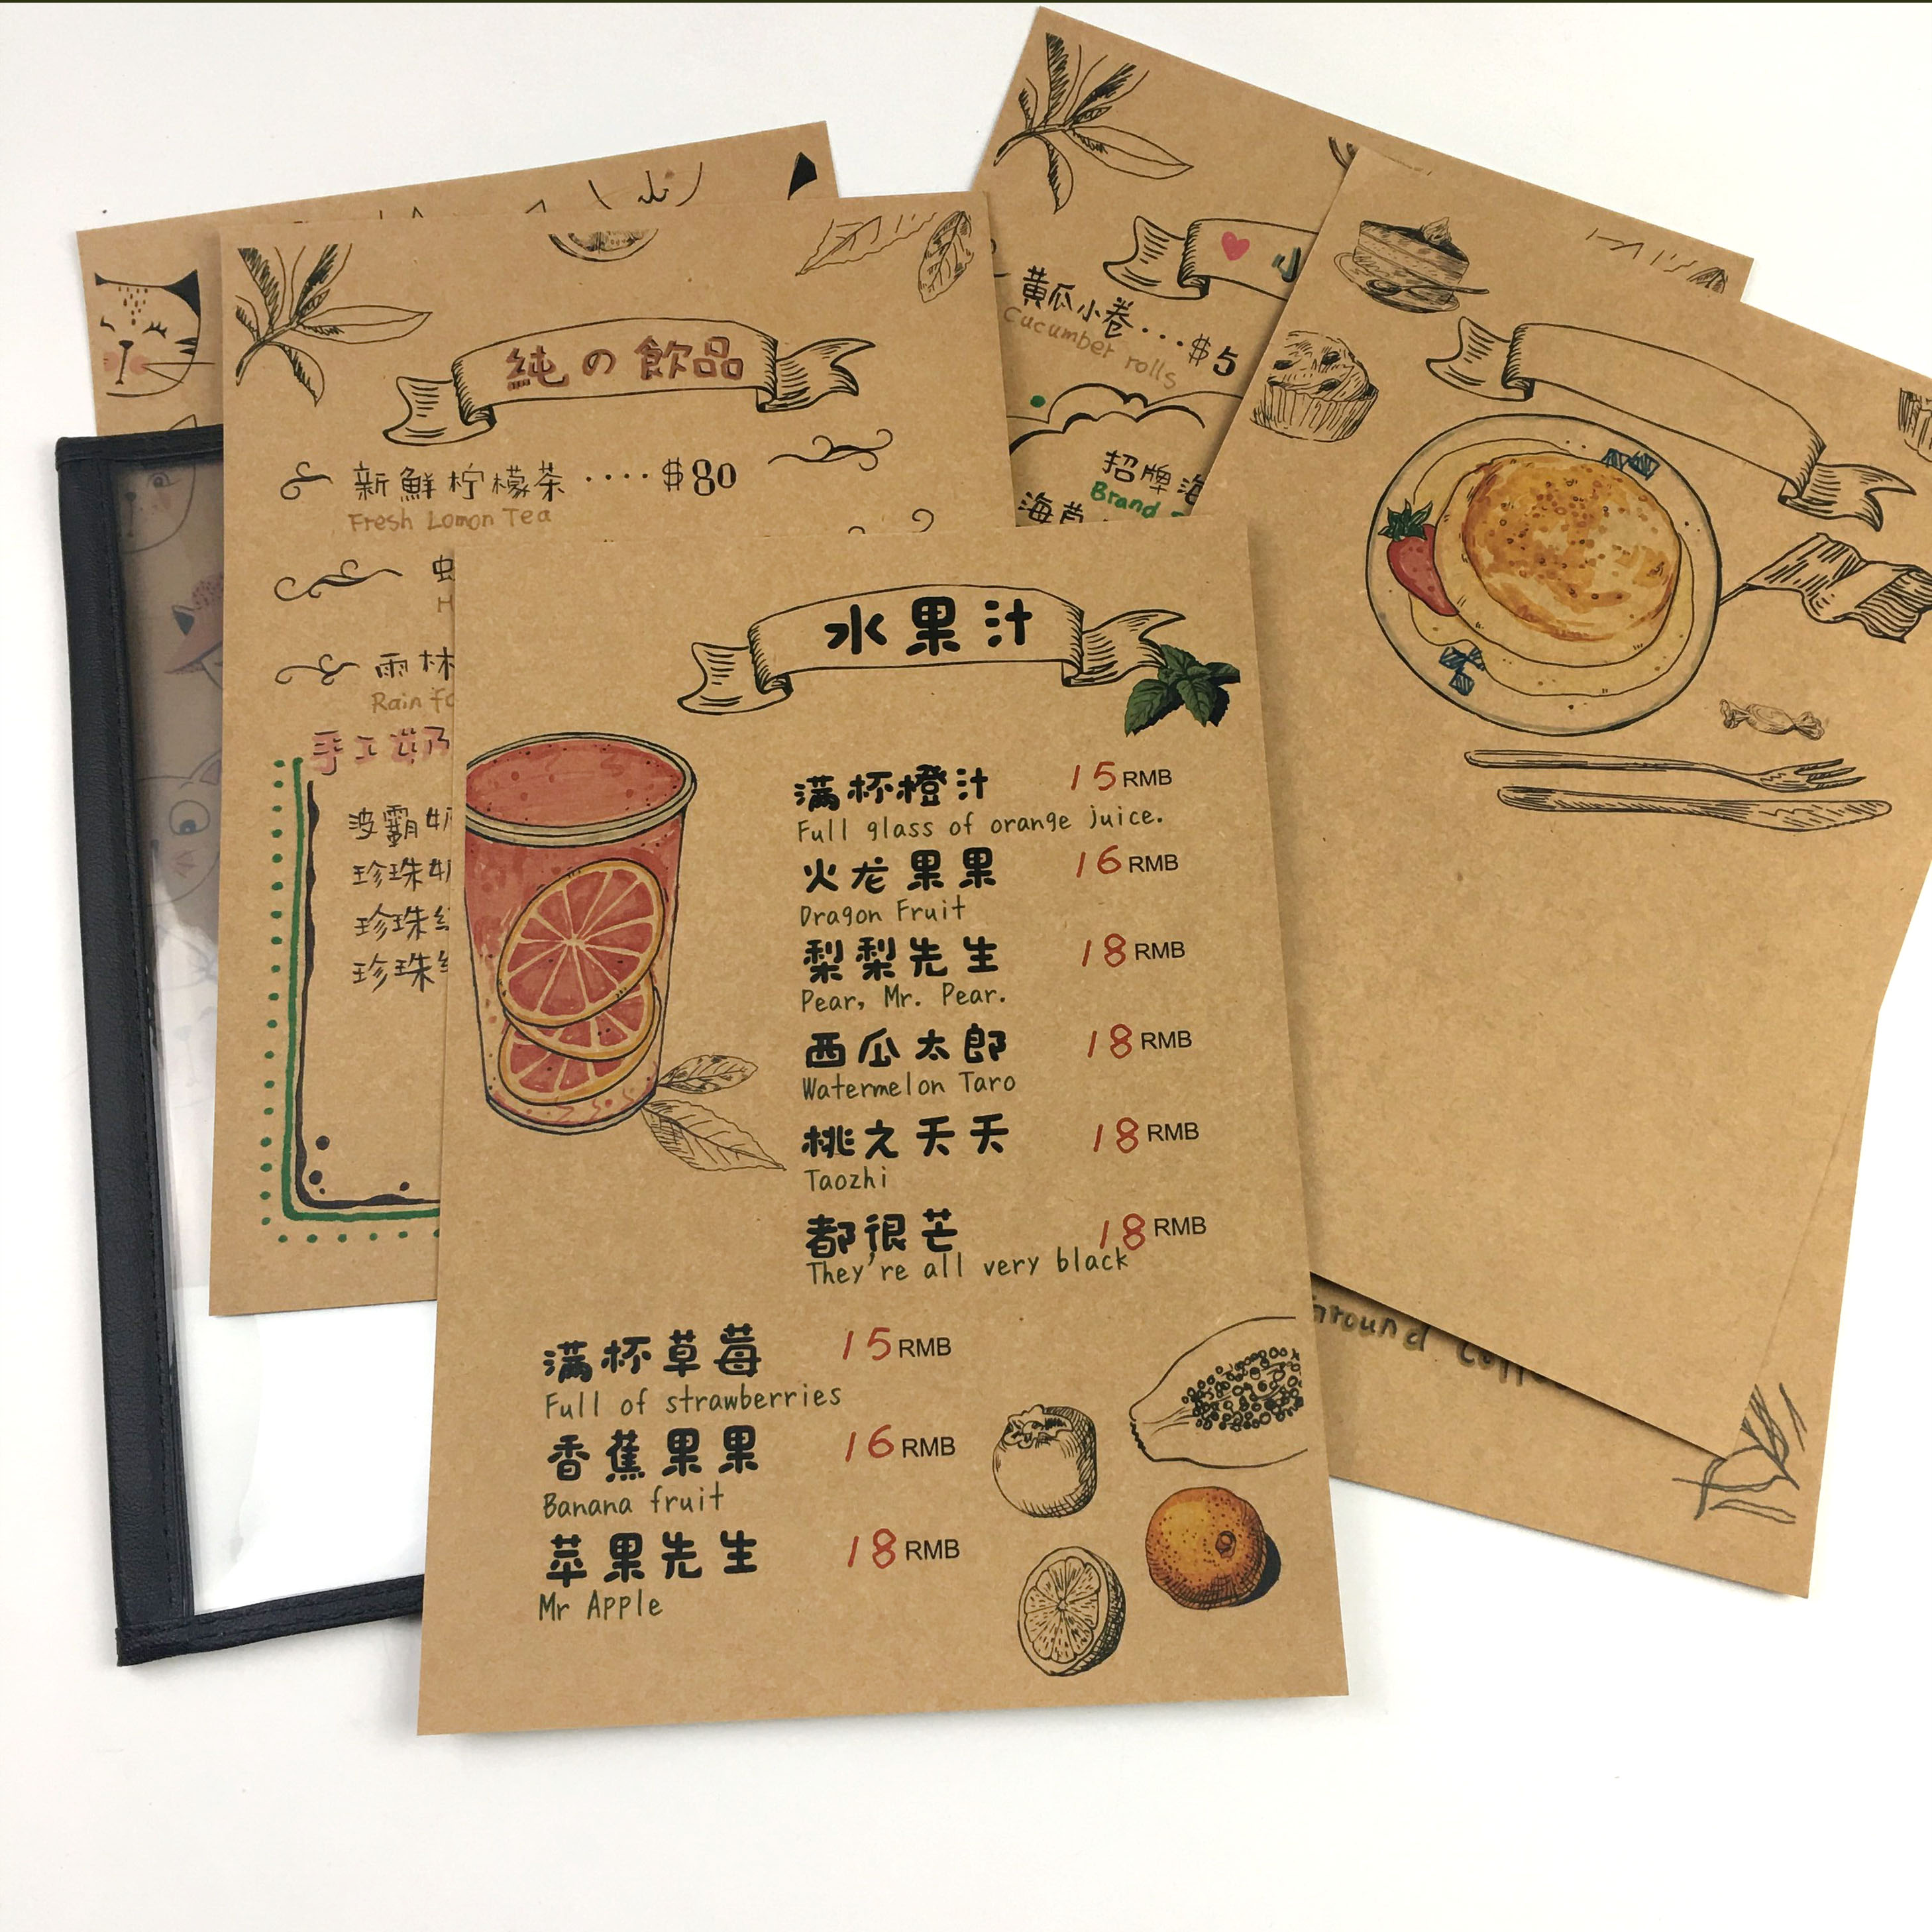 純の飲品
新鮮柠檬茶····$80
Fresh Lomon Tea
雨林
Rain fo
手工奶
波霸奶
珍珠奶
珍珠红
珍珠
黄瓜小卷...$5
Cucumber rolls
招牌海
Brand
海草
水果汁
满杯橙汁 15RMB
Full glass of orange juice.
火龙果果 16RMB
Dragon Fruit
梨梨先生 18RMB
Pear, Mr. Pear.
西瓜太郎 18RMB
Watermelon Taro
桃之夭夭 18RMB
Taozhi
都很芒 18RMB
They're all very black
满杯草莓 15RMB
Full of strawberries
香蕉果果 16RMB
Banana fruit
苹果先生 18RMB
Mr Apple